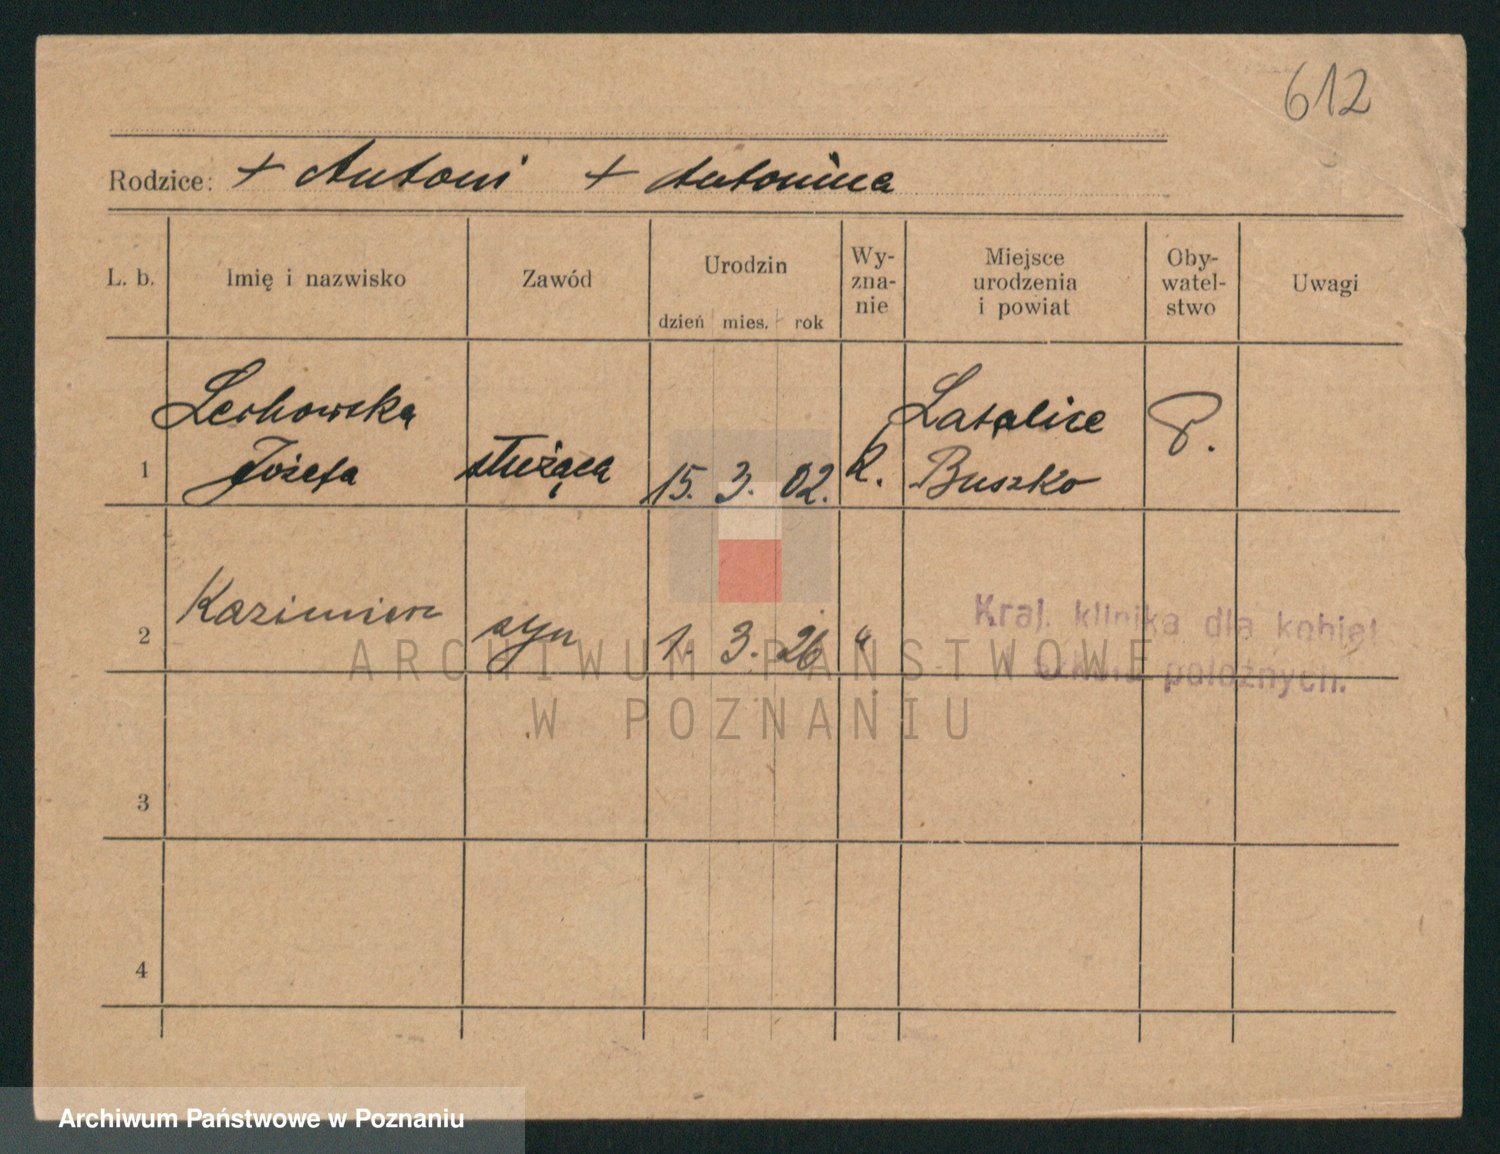 612
Rodzice: + Antoni + Antonina
L. b. Imię i nazwisko Zawód Urodzin dzień mies. rok Wy-zna-nie Miejsce urodzenia i powiat Oby-watel-stwo Uwagi
Lechowska Latalice P.
1 Józefa służąca 15. 3. 02. R. Buszko
Kazimierz Kraj. klinika dla kobiet
2 syn 1. 3. 26 "
szkoła położnych.
ARCHIWUM PAŃSTWOWE
W POZNANIU
3
4
Archiwum Państwowe w Poznaniu